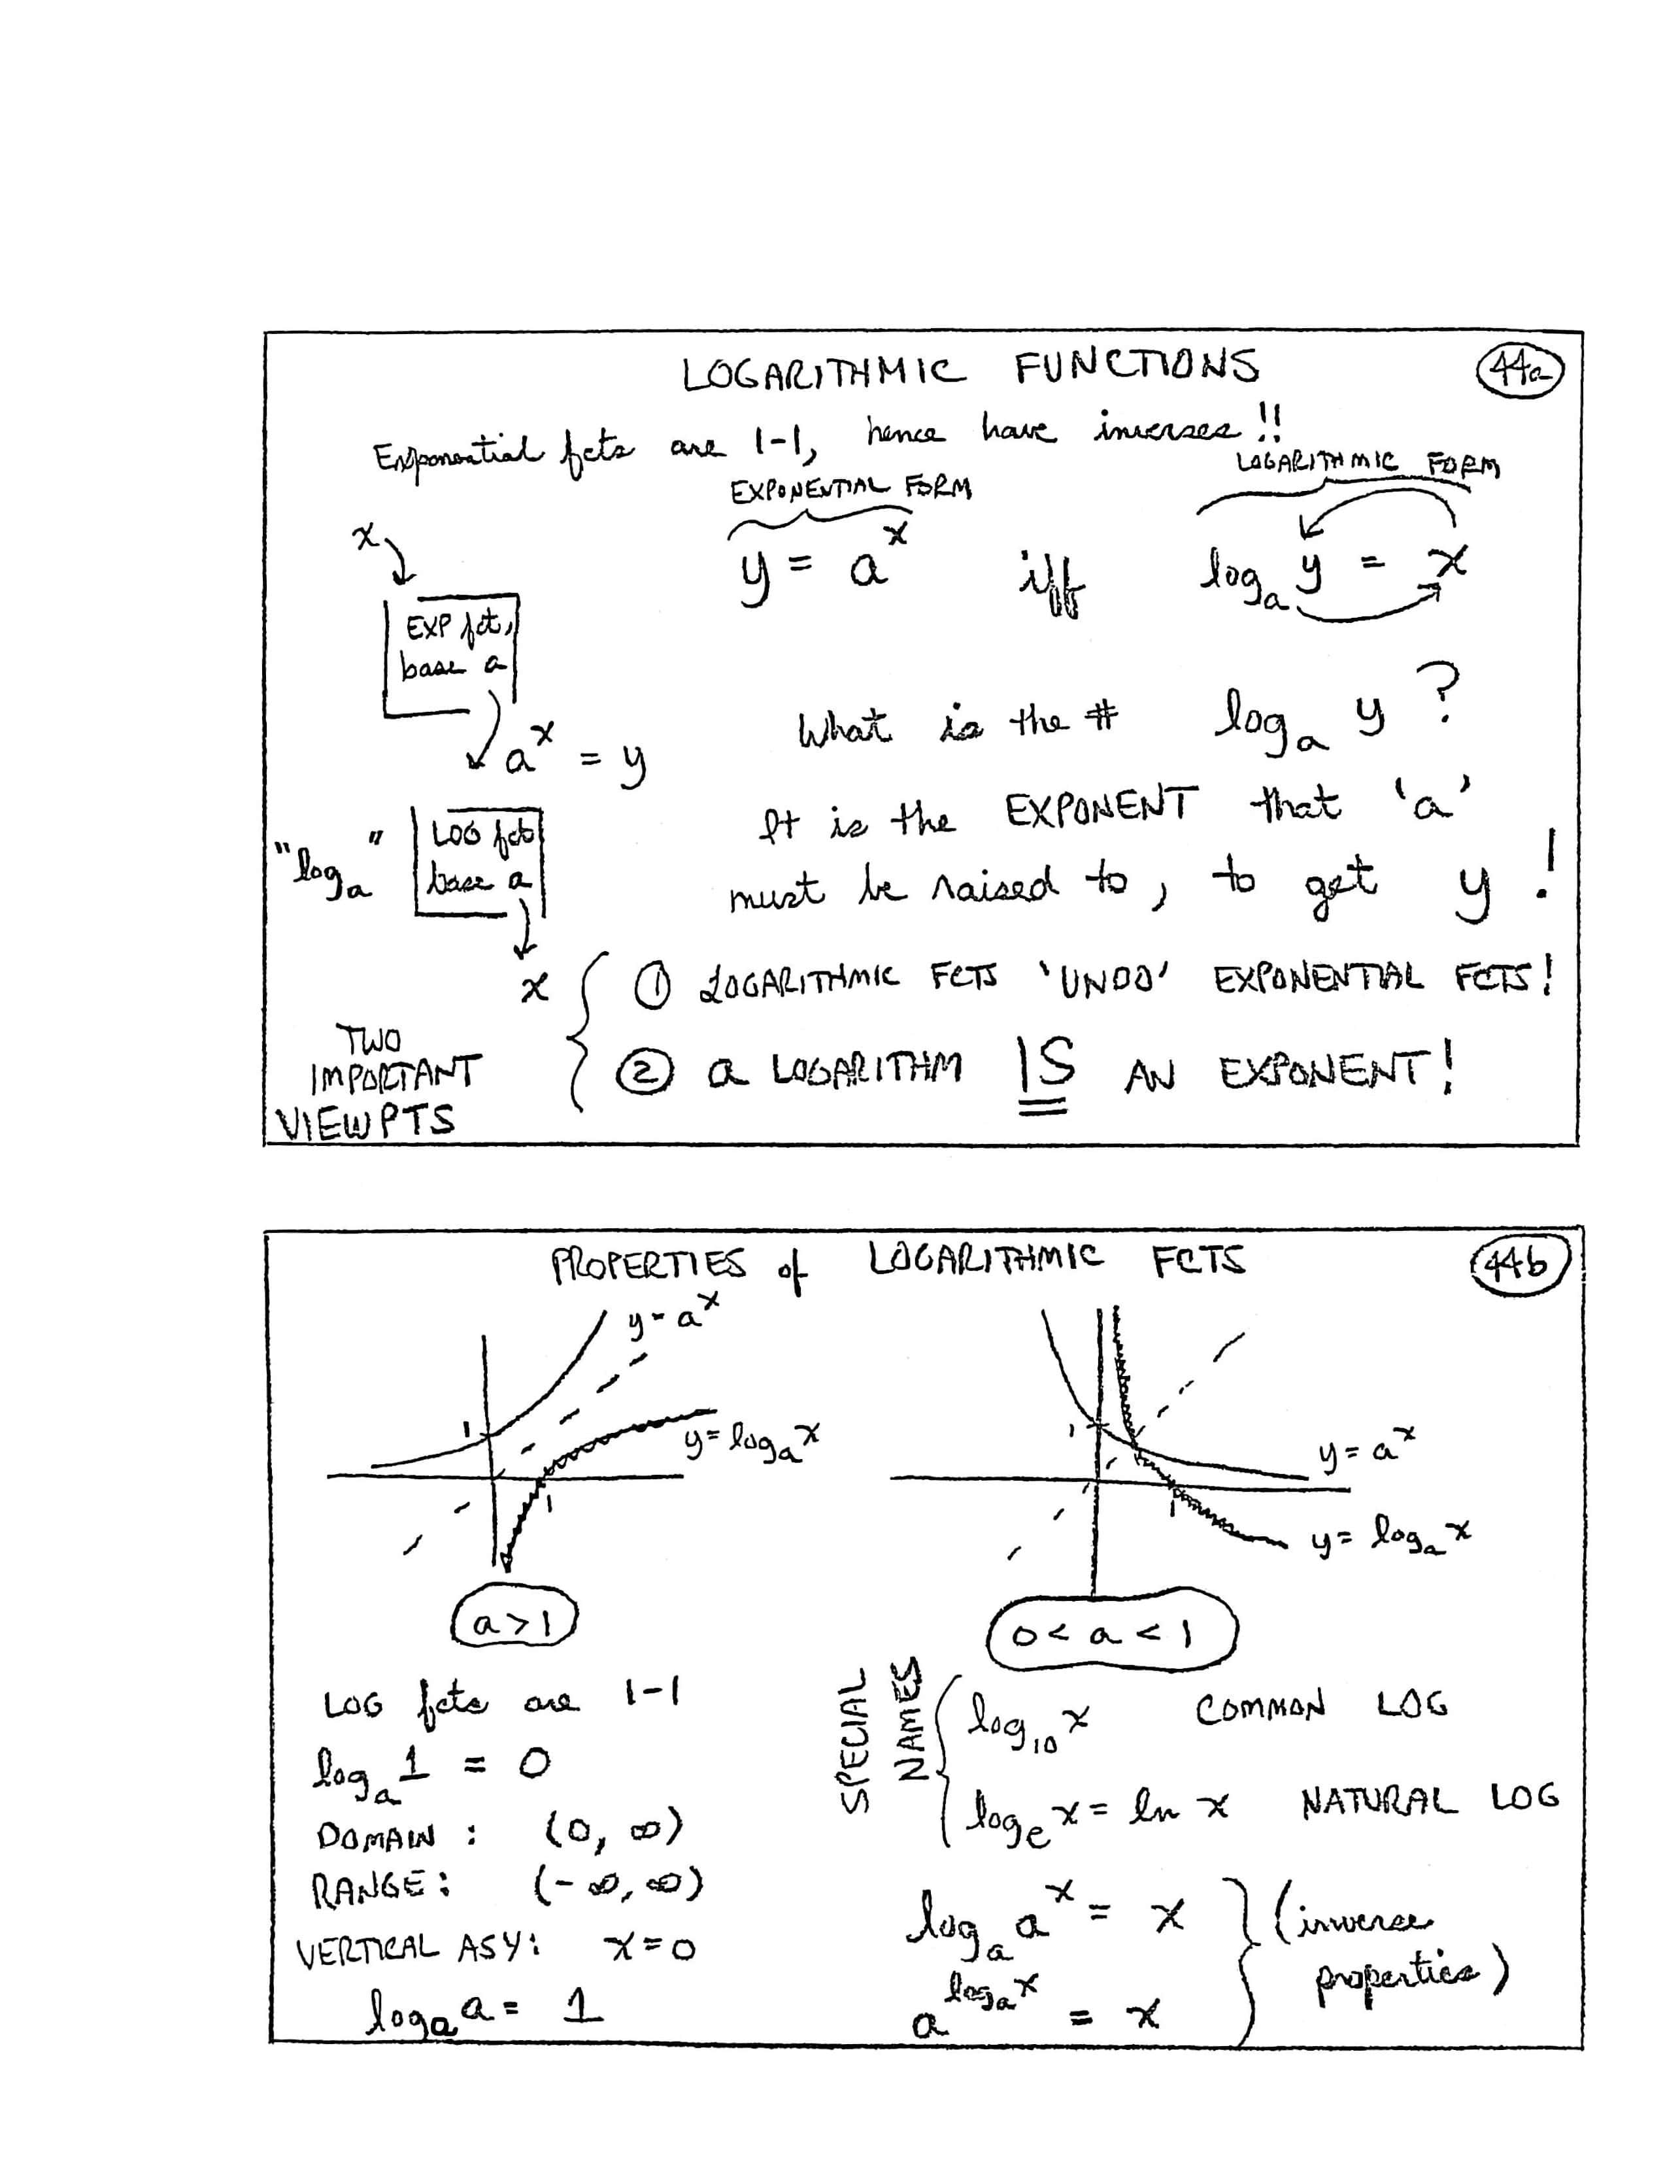 LOGARITHMIC FUNCTIONS
44a
Exponential fcts are 1-1, hence have inverses!!
EXPONENTIAL FORM
LOGARITHMIC FORM
y = a^x iff log_a y = x
x
EXP fct,
base a
a^x = y
"log_a"
LOG fct
base a
x
What is the # log_a y ?
It is the EXPONENT that 'a'
must be raised to, to get y!
TWO
IMPORTANT
VIEWPTS
① LOGARITHMIC FCTS 'UNDO' EXPONENTIAL FCTS!
② a LOGARITHM IS AN EXPONENT!
PROPERTIES of LOGARITHMIC FCTS
44b
y = a^x
1
y = log_a x
1
a > 1
1
y = a^x
1
y = log_a x
0 < a < 1
LOG fcts are 1-1
log_a 1 = 0
DOMAIN: (0, ∞)
RANGE: (-∞, ∞)
VERTICAL ASY: x = 0
log_a a = 1
SPECIAL
NAMES
log_10 x COMMON LOG
log_e x = ln x NATURAL LOG
log_a a^x = x
a^(log_a x) = x
(inverse
properties)